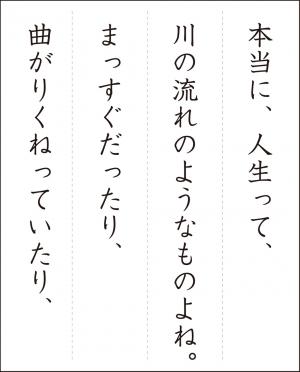 本当に、人生って、
川の流れのようなものよね。
まっすぐだったり、
曲がりくねっていたり、